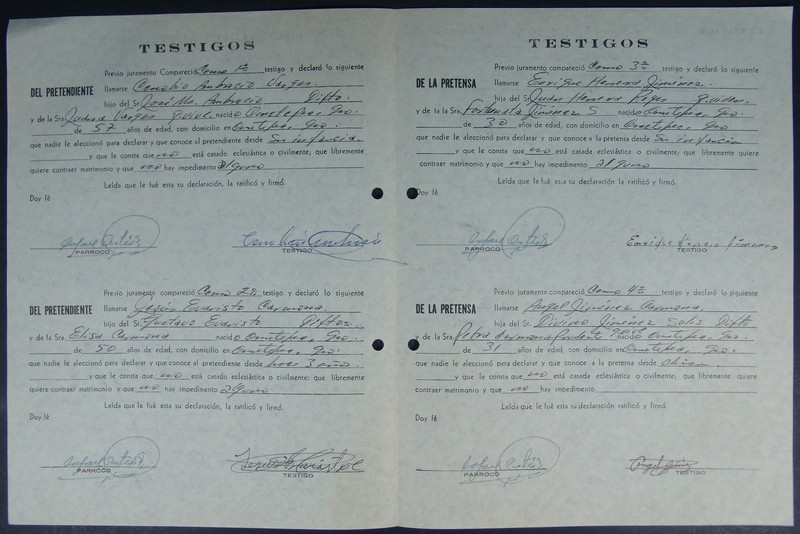 TESTIGOS
Previo juramento Compareció Como 1º testigo y declaró lo siguiente
DEL PRETENDIENTE llamarse Cornelio Ambrocio Vargas.
hijo del Sr. José Ma. Ambrocio Difto.
y de la Sra. Vargas q. vive nació Ometepec, Gro.
de 57 años de edad, con domicilio en Ometepec, Gro.
que nadie le aleccionó para declarar y que conoce al pretendiente desde Su infancia.
y que le consta que no está casado eclesiástica o civilmente; que libremente
quiere contraer matrimonio y que no hay impedimento alguno
Leída que le fué esta su declaración, la ratificó y firmó.
Doy fé
PARROCO TESTIGO
Previo juramento compareció Como 2º testigo y declaró lo siguiente
DEL PRETENDIENTE llamarse Jesús Evaristo Carmona.
hijo del Sr. Gustavo Evaristo Diftos.
y de la Sra. Elisa Carmona nació Ometepec, Gro.
de 50 años de edad, con domicilio en Ometepec, Gro.
que nadie le aleccionó para declarar y que conoce al pretendiente desde
y que le consta que no está casado eclesiástica o civilmente: que libremente
quiere contraer matrimonio y que no hay impedimento alguno
Leída que le fué esta su declaración, la ratificó y firmó.
Doy fé
PARROCO TESTIGO
TESTIGOS
Previo juramento compareció Como 3º testigo y declaró lo siguiente
DE LA PRETENSA llamarse Enrique Herrera Jiménez.
hijo del Sr. Herrera Reyes q. viven.
y de la Sra. Fortunata Jiménez S nació Ometepec, Gro.
de 30 años de edad, con domicilio en Ometepec, Gro
que nadie le aleccionó para declarar y que conoce a la pretensa desde Su infancia
y que le consta que no está casada eclesiástica o civilmente; que libremente
quiere contraer matrimonio y que no hay impedimento alguno
Leída que le fué esta su declaración, la ratificó y firmó.
Doy fé
PARROCO TESTIGO
Previo juramento compareció Como 4º testigo y declaró lo siguiente
DE LA PRETENSA llamarse Angel Jiménez Carmona.
hijo del Sr. Divino Jiménez Solis Difto
y de la Sra. Petra Carmona nació Ometepec, Gro.
de 31 años de edad, con domicilio en Ometepec, Gro.
que nadie le aleccionó para declarar y que conoce a la pretensa desde
y que le consta que no está casada eclesiástica o civilmente; que libremente
quiere contraer matrimonio y que no hay impedimento
Leída que le fué esta su declaración ratificó y firmó.
Doy fé
PARROCO TESTIGO